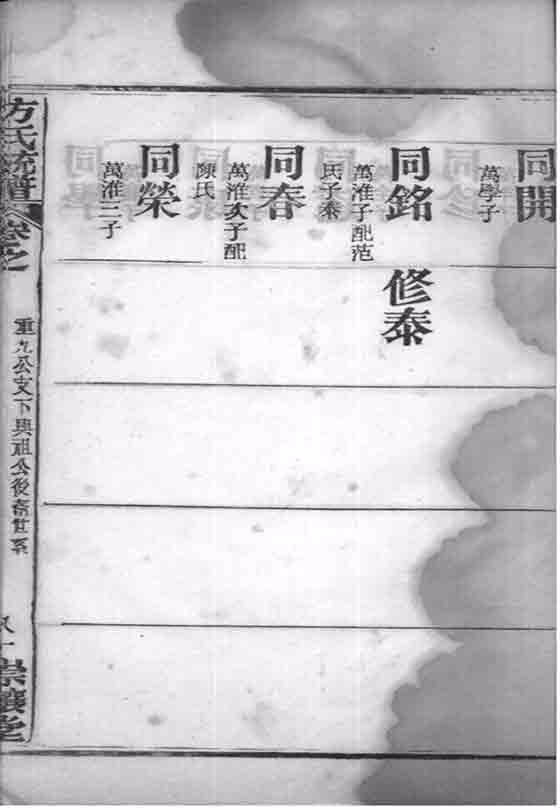 同開
萬學子
同銘
修泰
萬淮子配范
氏子泰
同春
萬淮次子配
陳氏
同榮
萬淮三子
方氏統譜
卷之
重九公支下興祖公後裔世系